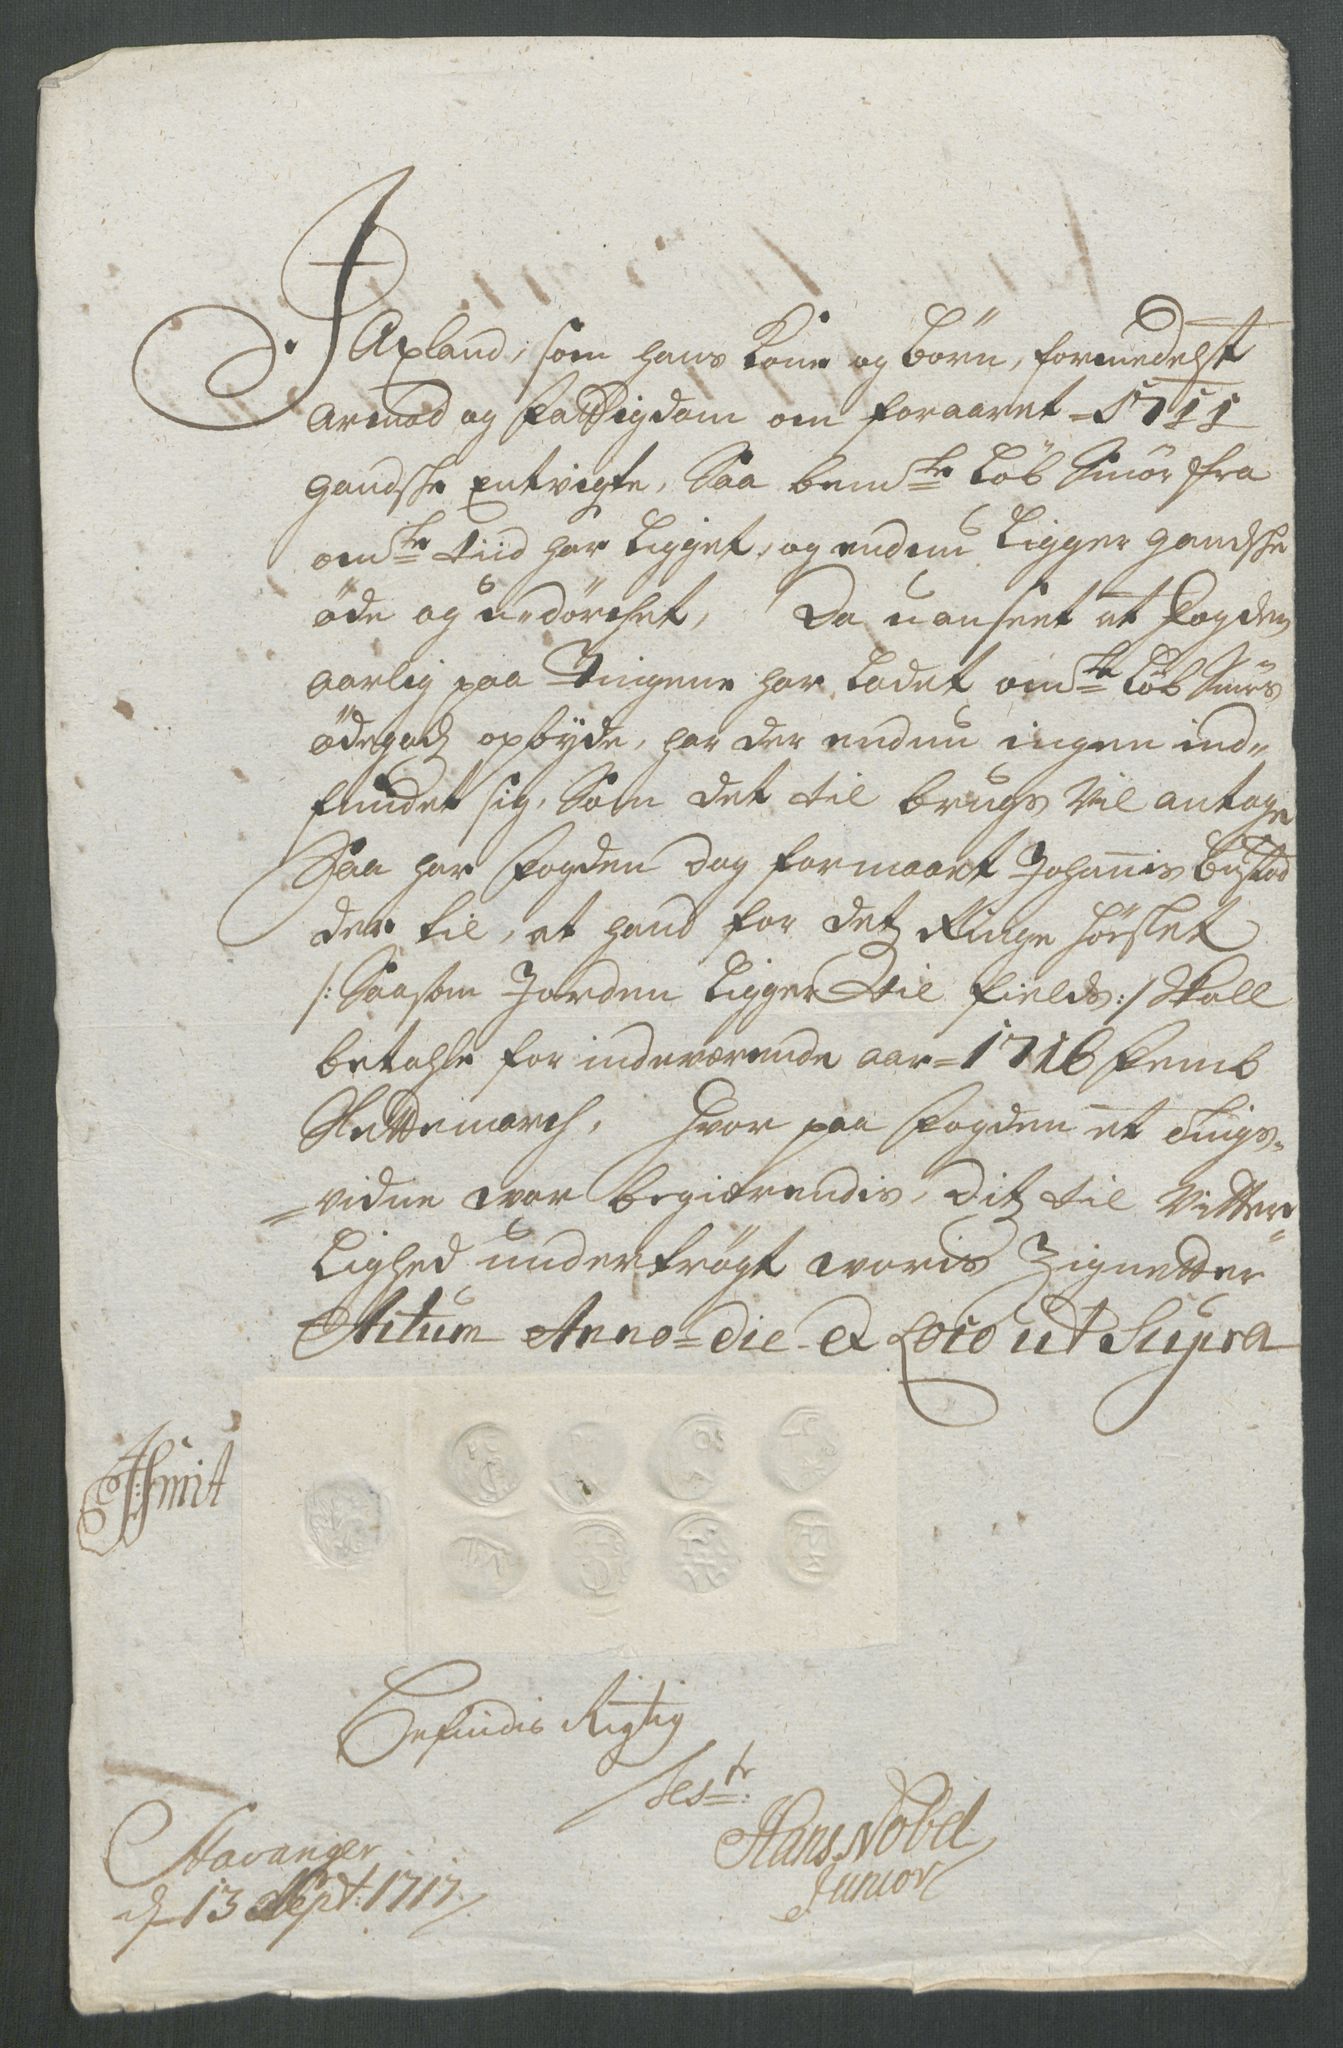 I
Axland, som hans Kone og børn, formedelst
Armod og Fattigdom om foraaret = 1711
gandske Entvigte, Saa bemte Løb Smør fra
omte tiid har Ligget, og endnu Ligger gandske
øde og u-dørchet, Da uanseet at Fogden
aarlig paa Tingene har Ladet omte Løb Smørs
ødegods opbyde, har der endnu ingen ind-
fundet sig, Som det til brugs Vil antage
Saa har Fogden dog formaaet Johannis
der til, at hand for det Ringe Høeslet
/: Saasom Jorden Ligger til fields :/ Skall
betahle for indeværende aar = 1716 Femb
Slettemarch, Hvor paa Fogden et Tings-
=vidne war begiærendis, Ditz til Vitter-
Lighed undertrøgt woris Zignetter
Actum Anno = die - et Loco ut Supra
Smit
Befindis Rigtig
Test:
Hans Nobel
Junior
Stavanger
d 13 Sept: 1717